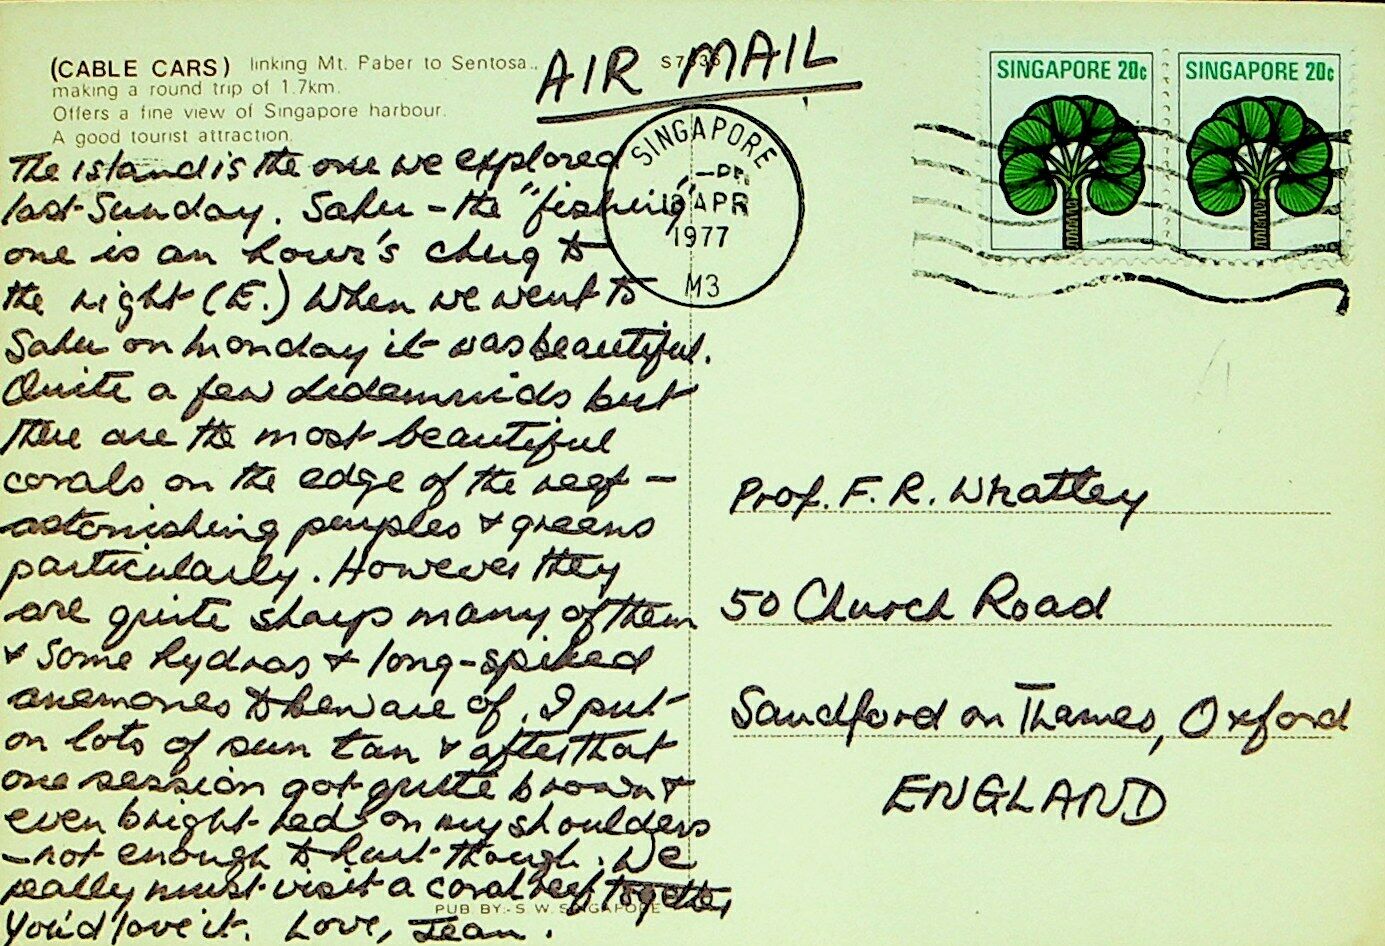 (CABLE CARS) linking Mt. Paber to Sentosa.,
making a round trip of 1.7km.
Offers a fine view of Singapore harbour.
A good tourist attraction.
AIR MAIL
SINGAPORE
APR
1977
M3
SINGAPORE 20c
SINGAPORE 20c
The island is the one we explored
last Sunday. Sahu - the "fishing"
one is an hour's chug to
the right (E.) When we went to
Sahu on Monday it was beautiful.
Quite a few didemnids but
there are the most beautiful
corals on the edge of the reef -
astonishing purples & greens
particularly. However they
are quite sharp many of them
& some hydras & long-spiked
anemones to beware of. I put
on lots of sun tan & after that
one session got quite brown &
even bright red on my shoulders
- not enough to hurt though. We
really must visit a coral reef together
You'd love it. Love, Jean.
PUB BY:- S. W. SINGAPORE
Prof. F. R. Whatley
50 Church Road
Sandford on Thames, Oxford
ENGLAND